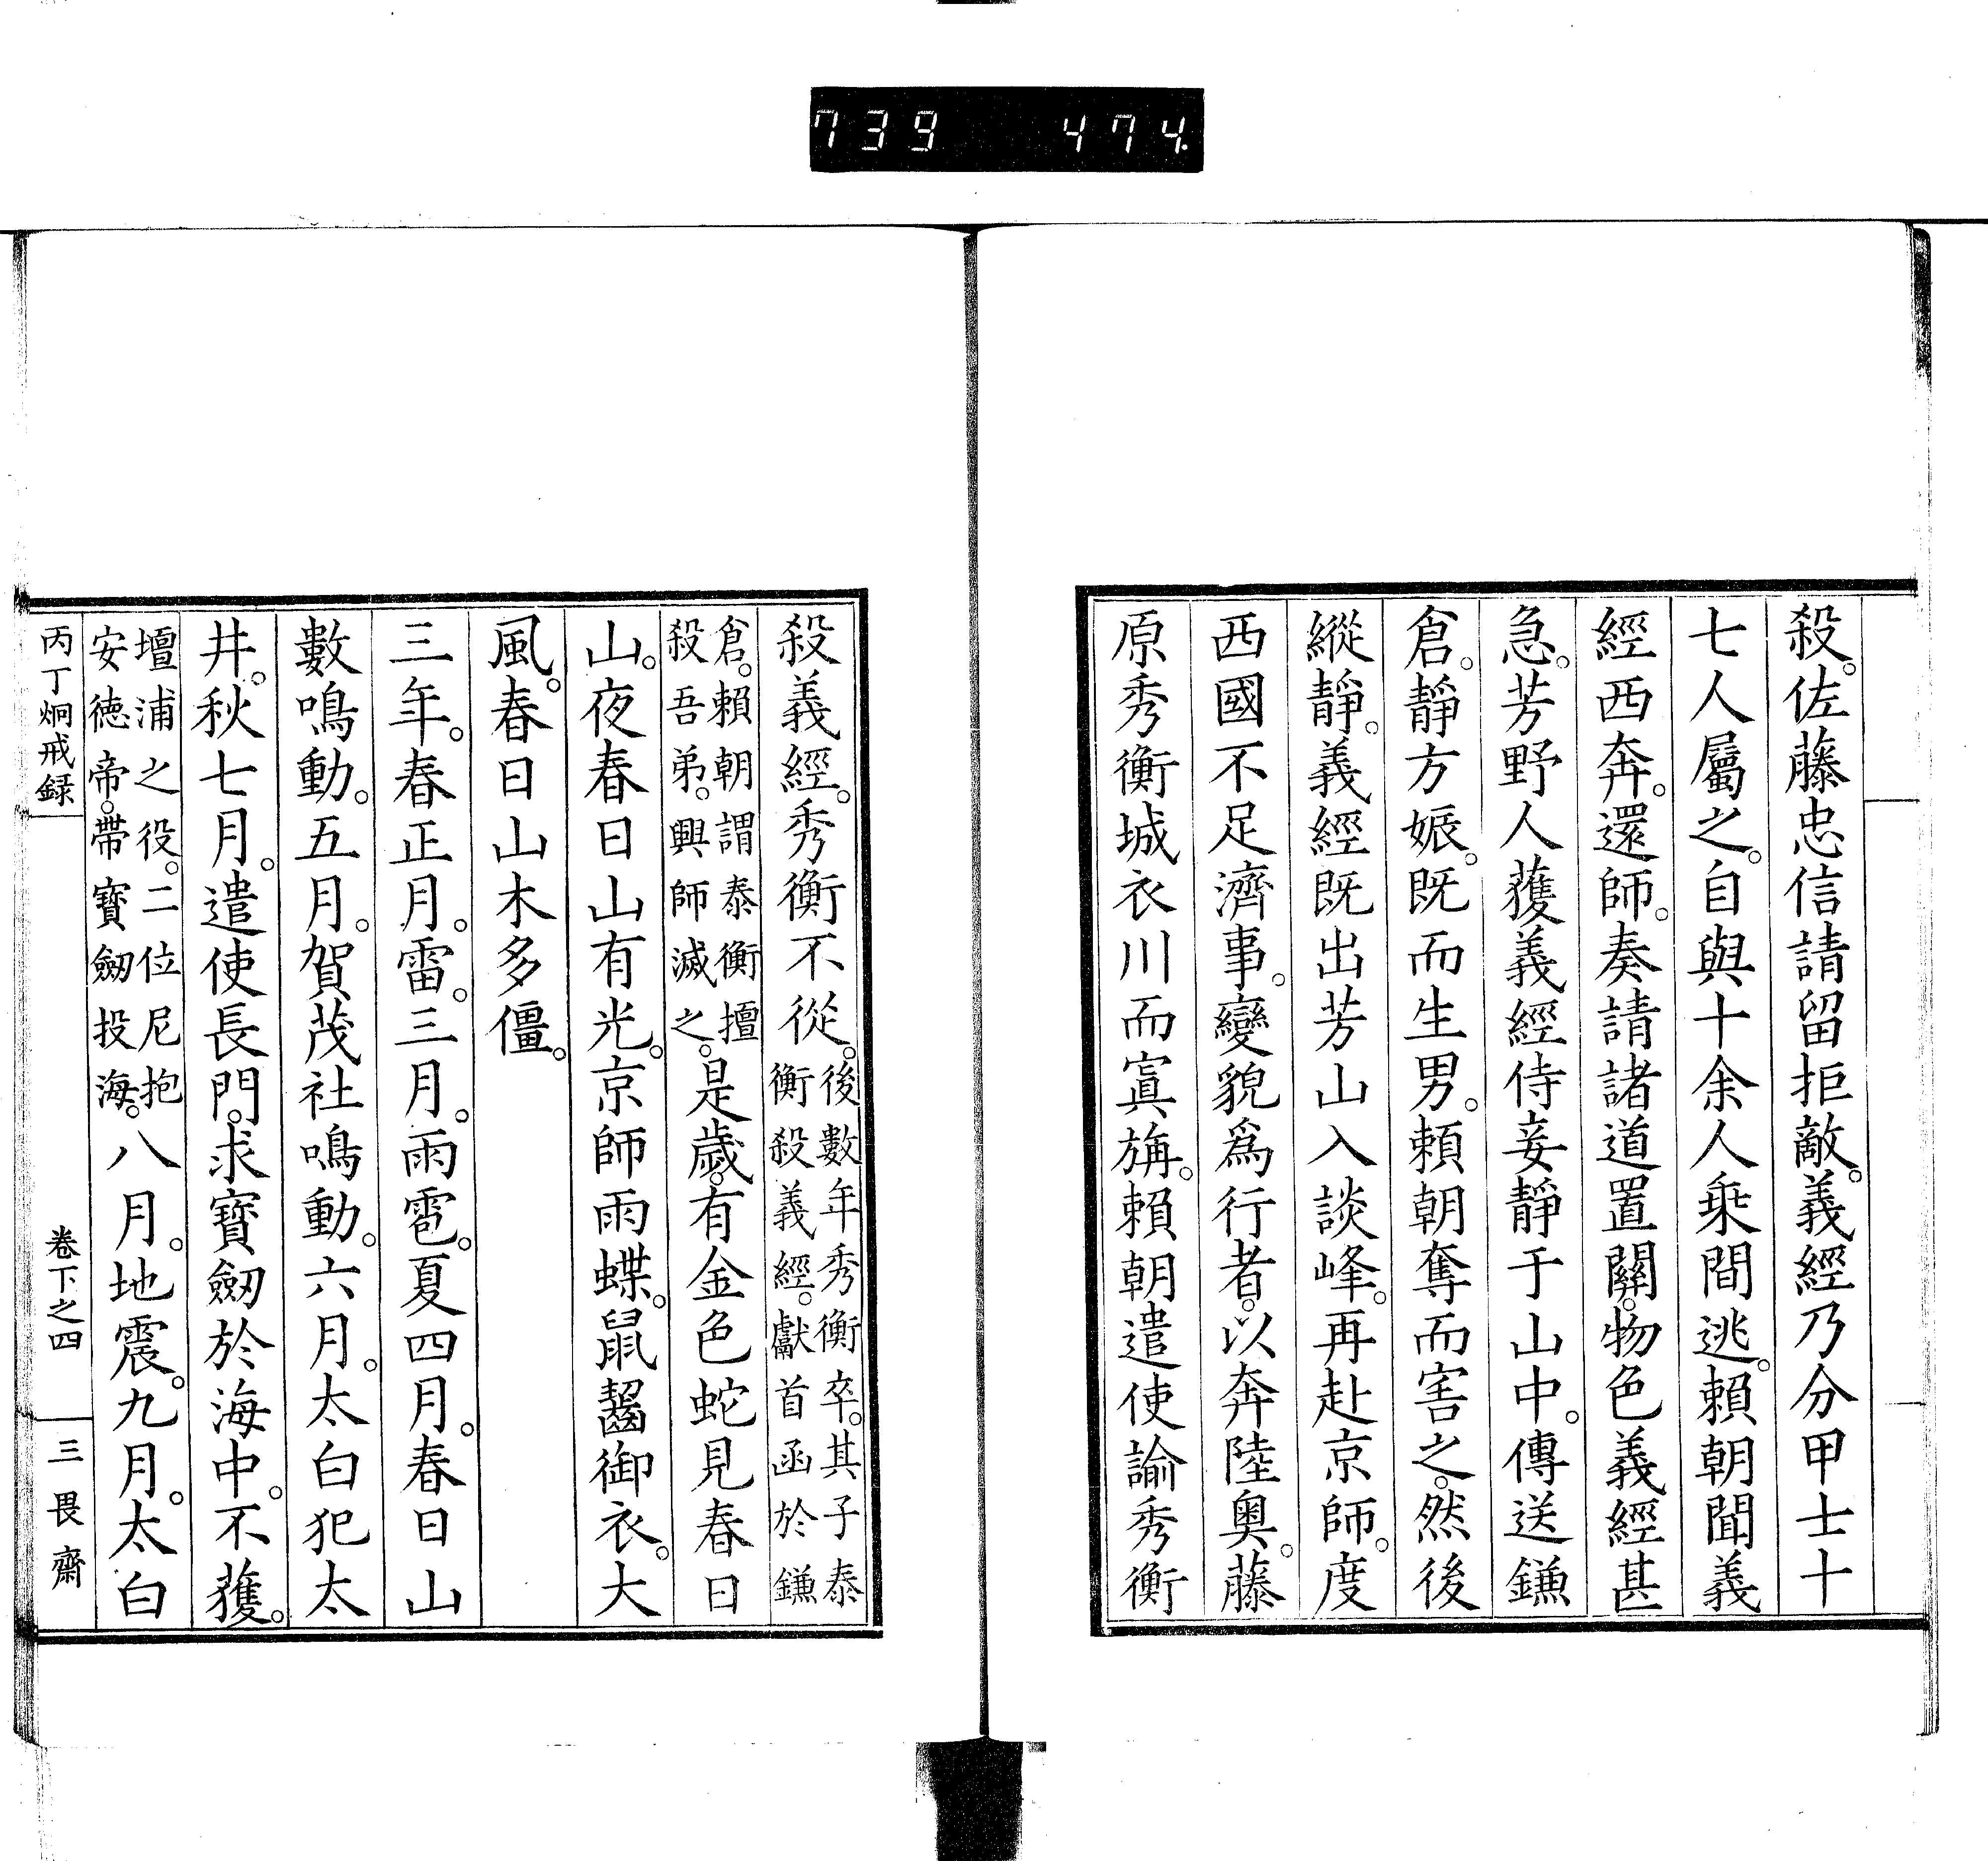 739 474
殺。佐藤忠信請留拒敵。義經乃分甲士十
七人屬之。自與十余人乘間逃。賴朝聞義
經西奔。還師。奏請諸道置關。物色義經甚
急。芳野人獲義經侍妾靜于山中。傳送鎌
倉。靜方娠。既而生男。賴朝奪而害之。然後
縱靜。義經既出芳山入談峰。再赴京師。度
西國不足濟事。變貌爲行者。以奔陸奥。藤
原秀衡城衣川而寘旃。賴朝遣使諭秀衡
殺義經。秀衡不從。後數年秀衡卒。其子泰
衡殺義經。獻首函於鎌
倉。賴朝謂泰衡擅
殺吾弟。興師滅之。是歲。有金色蛇見春日
山。夜春日山有光。京師雨蝶。鼠齧御衣。大
風。春日山木多僵。
三年。春正月。雷。三月。雨雹。夏四月。春日山
數鳴動。五月。賀茂社鳴動。六月。太白犯太
井。秋七月。遣使長門。求寶劒於海中。不獲。
壇浦之役。二位尼抱
安徳帝。帶寶劒投海。八月。地震。九月。太白
丙丁炯戒録 卷下之四 三畏齋